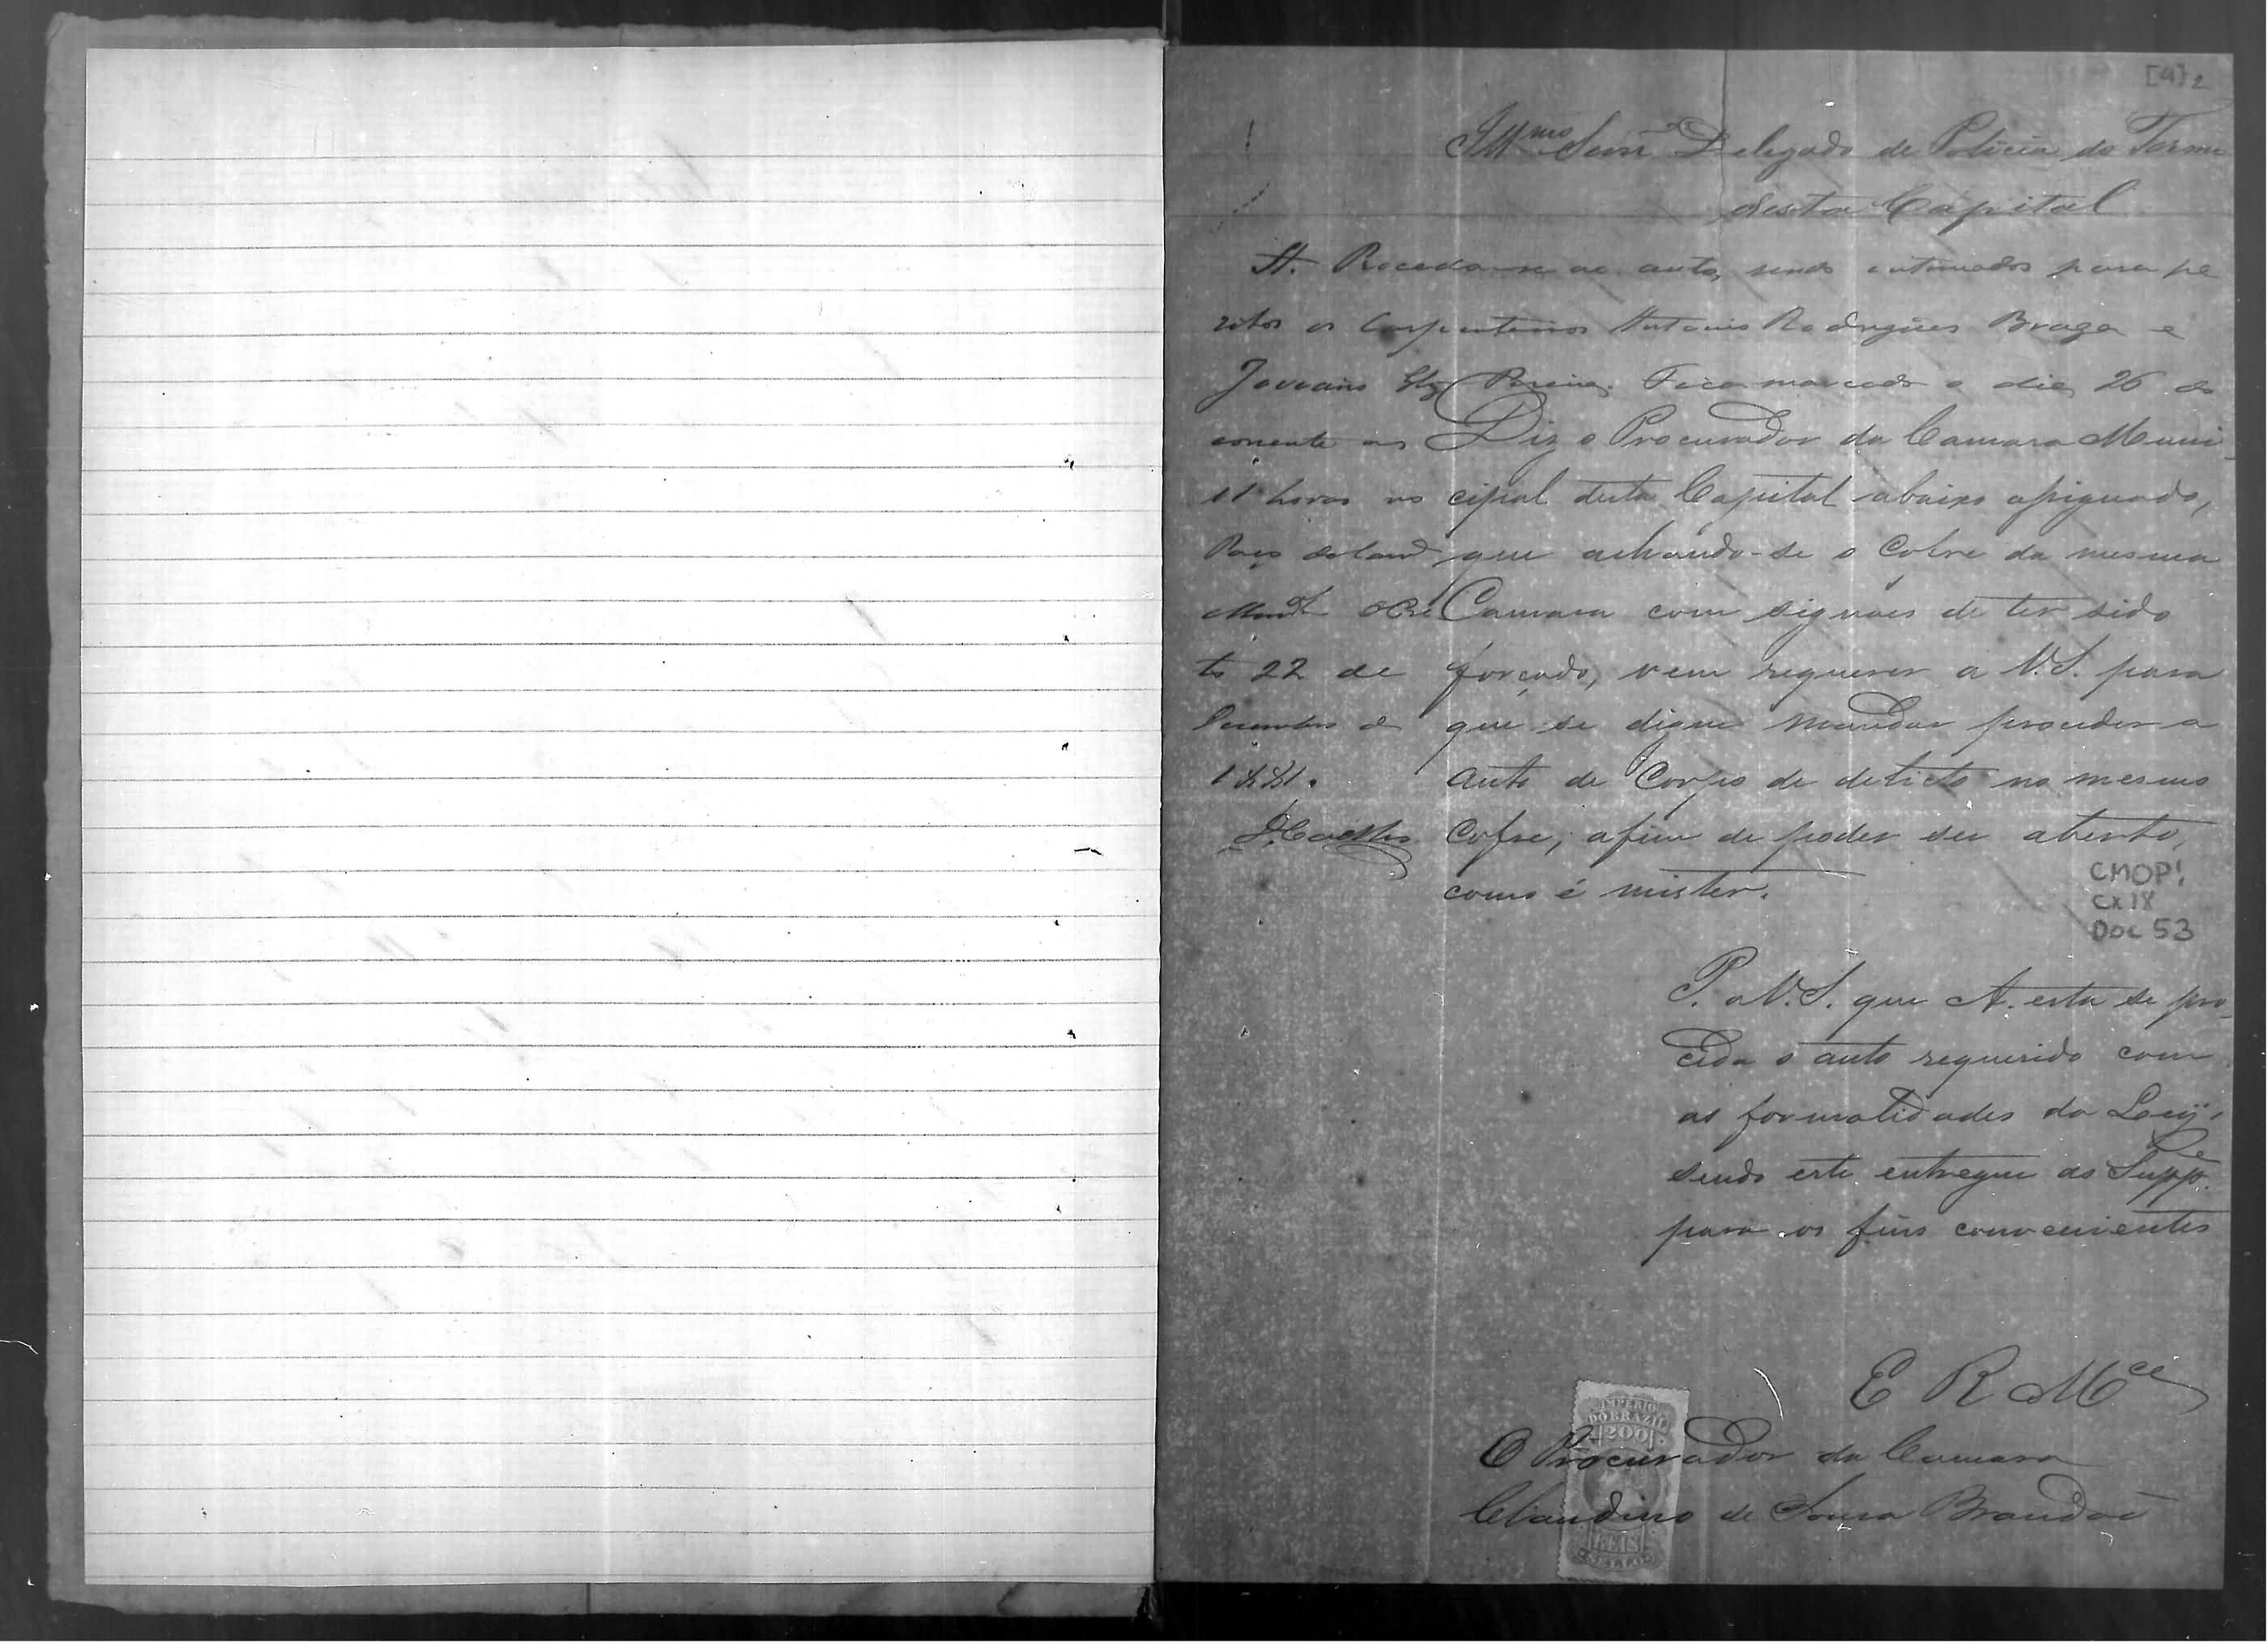 [4] 2
Illmo Senr Delegado de Policia do Termo
desta Capital
A. Proceda-se ao auto, sendo intimados para pe
ritos os Carpinteiros Antonio Rodrigues Braga e
Pereira. Fica marcado o dia 26 do
corrente as
11 horas no
Paço da Camª
Ouro Pre
to 22 de
Dezembro de
1881.
Diz o Procurador da Camara Muni-
cipal desta Capital abaixo assignado,
que achando-se o Cofre da mesma
Camara com signaes de ter sido
forçado, vem requerer a V.S. para
que se digne mandar proceder a
auto de Corpo de delicto no mesmo
Cofre, afim de poder ser aberto,
como é mister.
CMOP!
CX 18
DOC 53
P. a V.S. que A. esta se pro-
ceda o auto requerido com
as formalidades da Ley,
sendo este entregue ao Suppe.
para os fins convenientes
E R Mce
IMPERIO
DO BRAZIL
200
REIS
SELLO
O Procurador da Camara
Claudino de Sousa Brandão